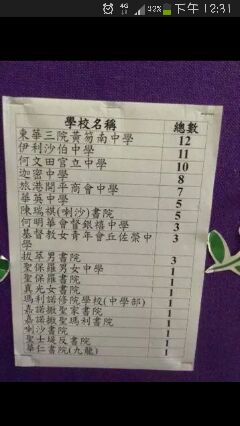 4G 92% 下午 12:31
學校名稱 總數
東華三院黃笏南中學 12
伊利沙伯中學 11
何文田官立中學 10
迦密中學 8
旅港開平商會中學 7
華英中學 5
陳瑞祺(喇沙)書院 5
何明華會督銀禧中學 3
基督教女青年會丘佐榮中學 3
拔萃男書院 3
聖保羅男女中學 1
聖保羅書院 1
真光女書院 1
瑪利諾修院學校(中學部) 1
嘉諾撒聖家書院 1
嘉諾撒聖瑪利書院 1
喇沙書院 1
聖士堤反書院 1
華仁書院(九龍) 1